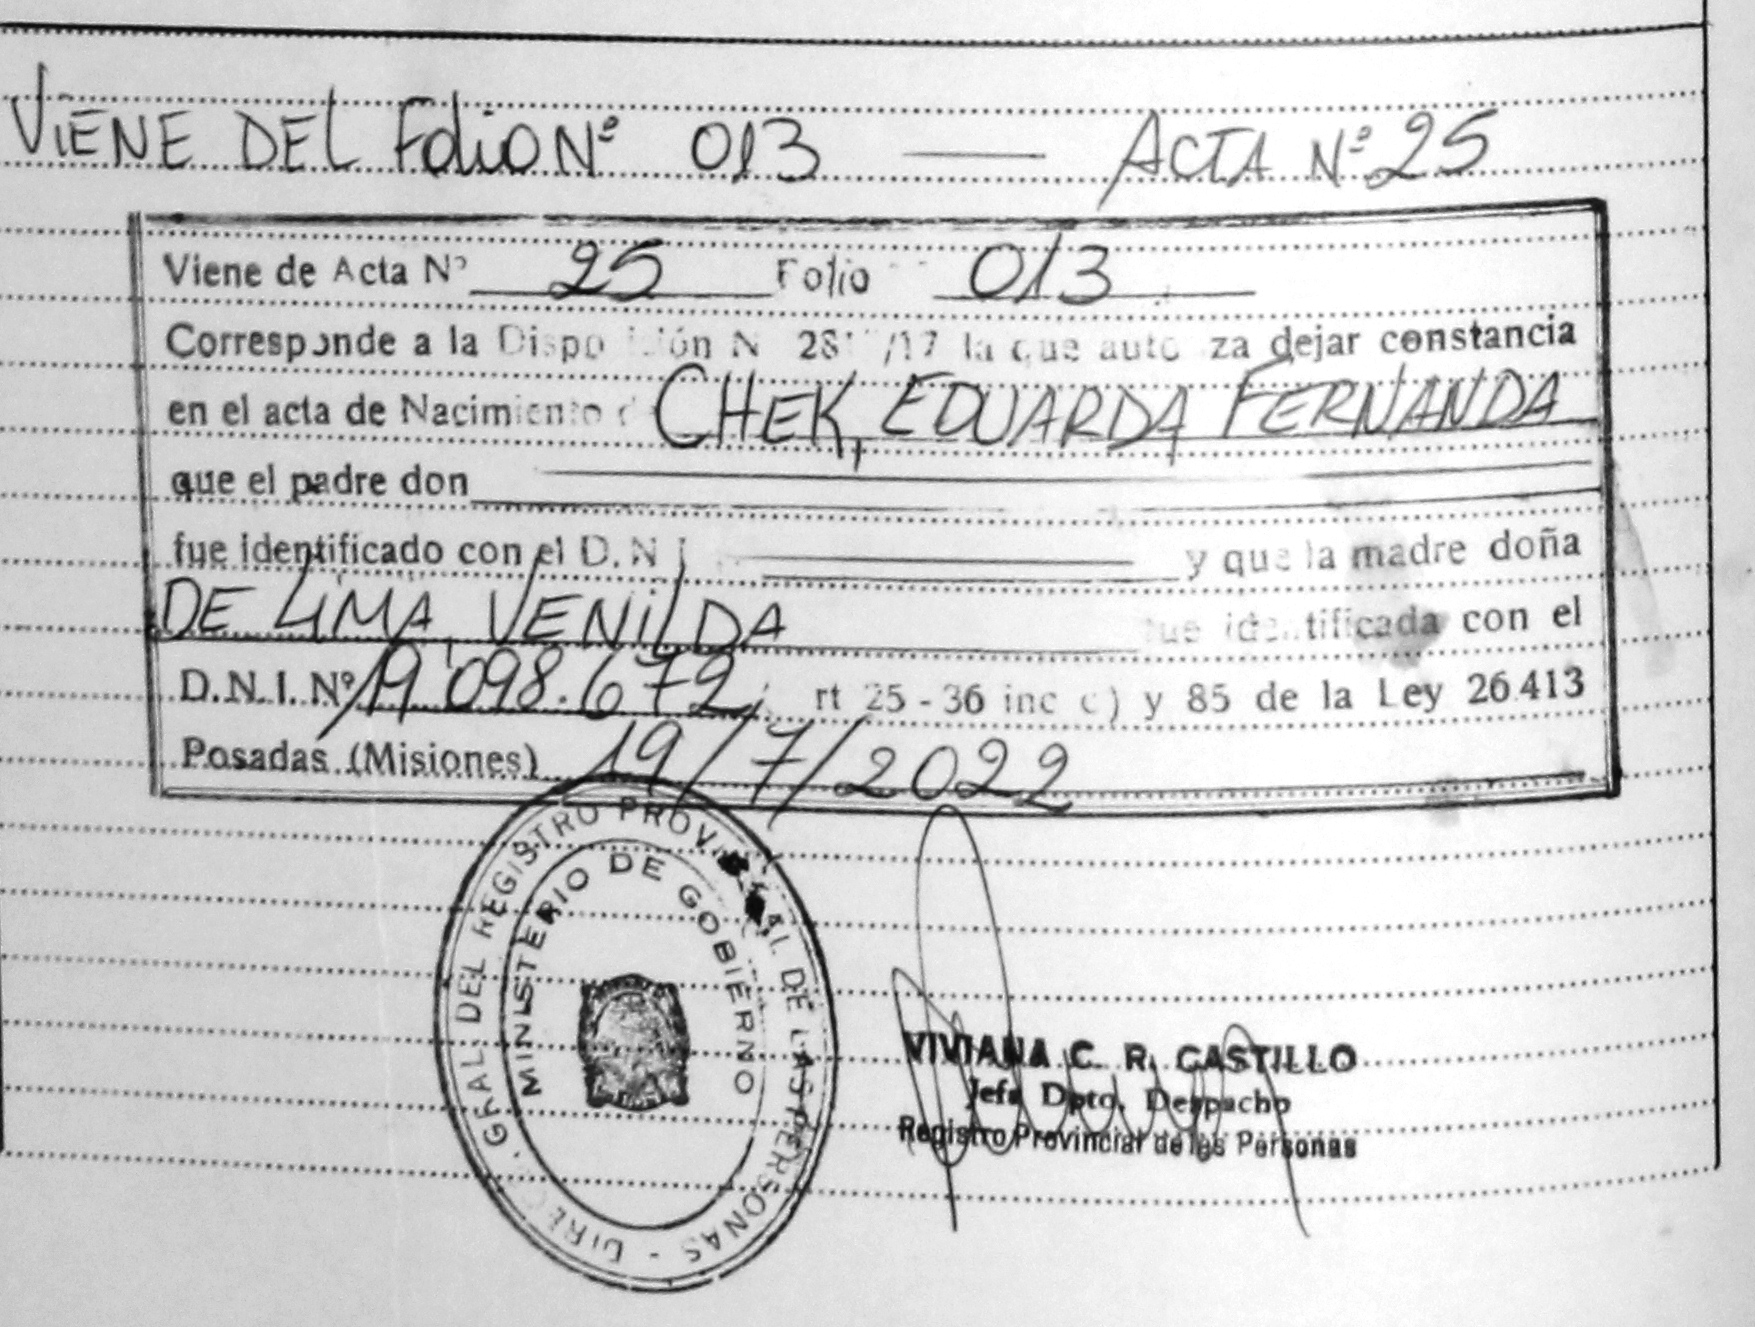 VIENE DEL Folio Nº 013 — ACTA Nº 25
Viene de Acta Nº 25 Folio 013
Corresponde a la Disposición N 28 /17 la que autoriza dejar constancia
en el acta de Nacimiento de CHEK, EDUARDA FERNANDA
que el padre don
fue identificado con el D.N.I. y que la madre doña
DE LIMA, VENILDA fue identificada con el
D.N.I. Nº 19.098.672 rt 25 - 36 inc c) y 85 de la Ley 26.413
Posadas (Misiones) 19/7/2022
DIREC. GRAL. DEL REGISTRO PROVINCIAL DE LAS PERSONAS -
MINISTERIO DE GOBIERNO
VIVIANA C. R. CASTILLO
Jefa Dpto. Despacho
Registro Provincial de las Personas